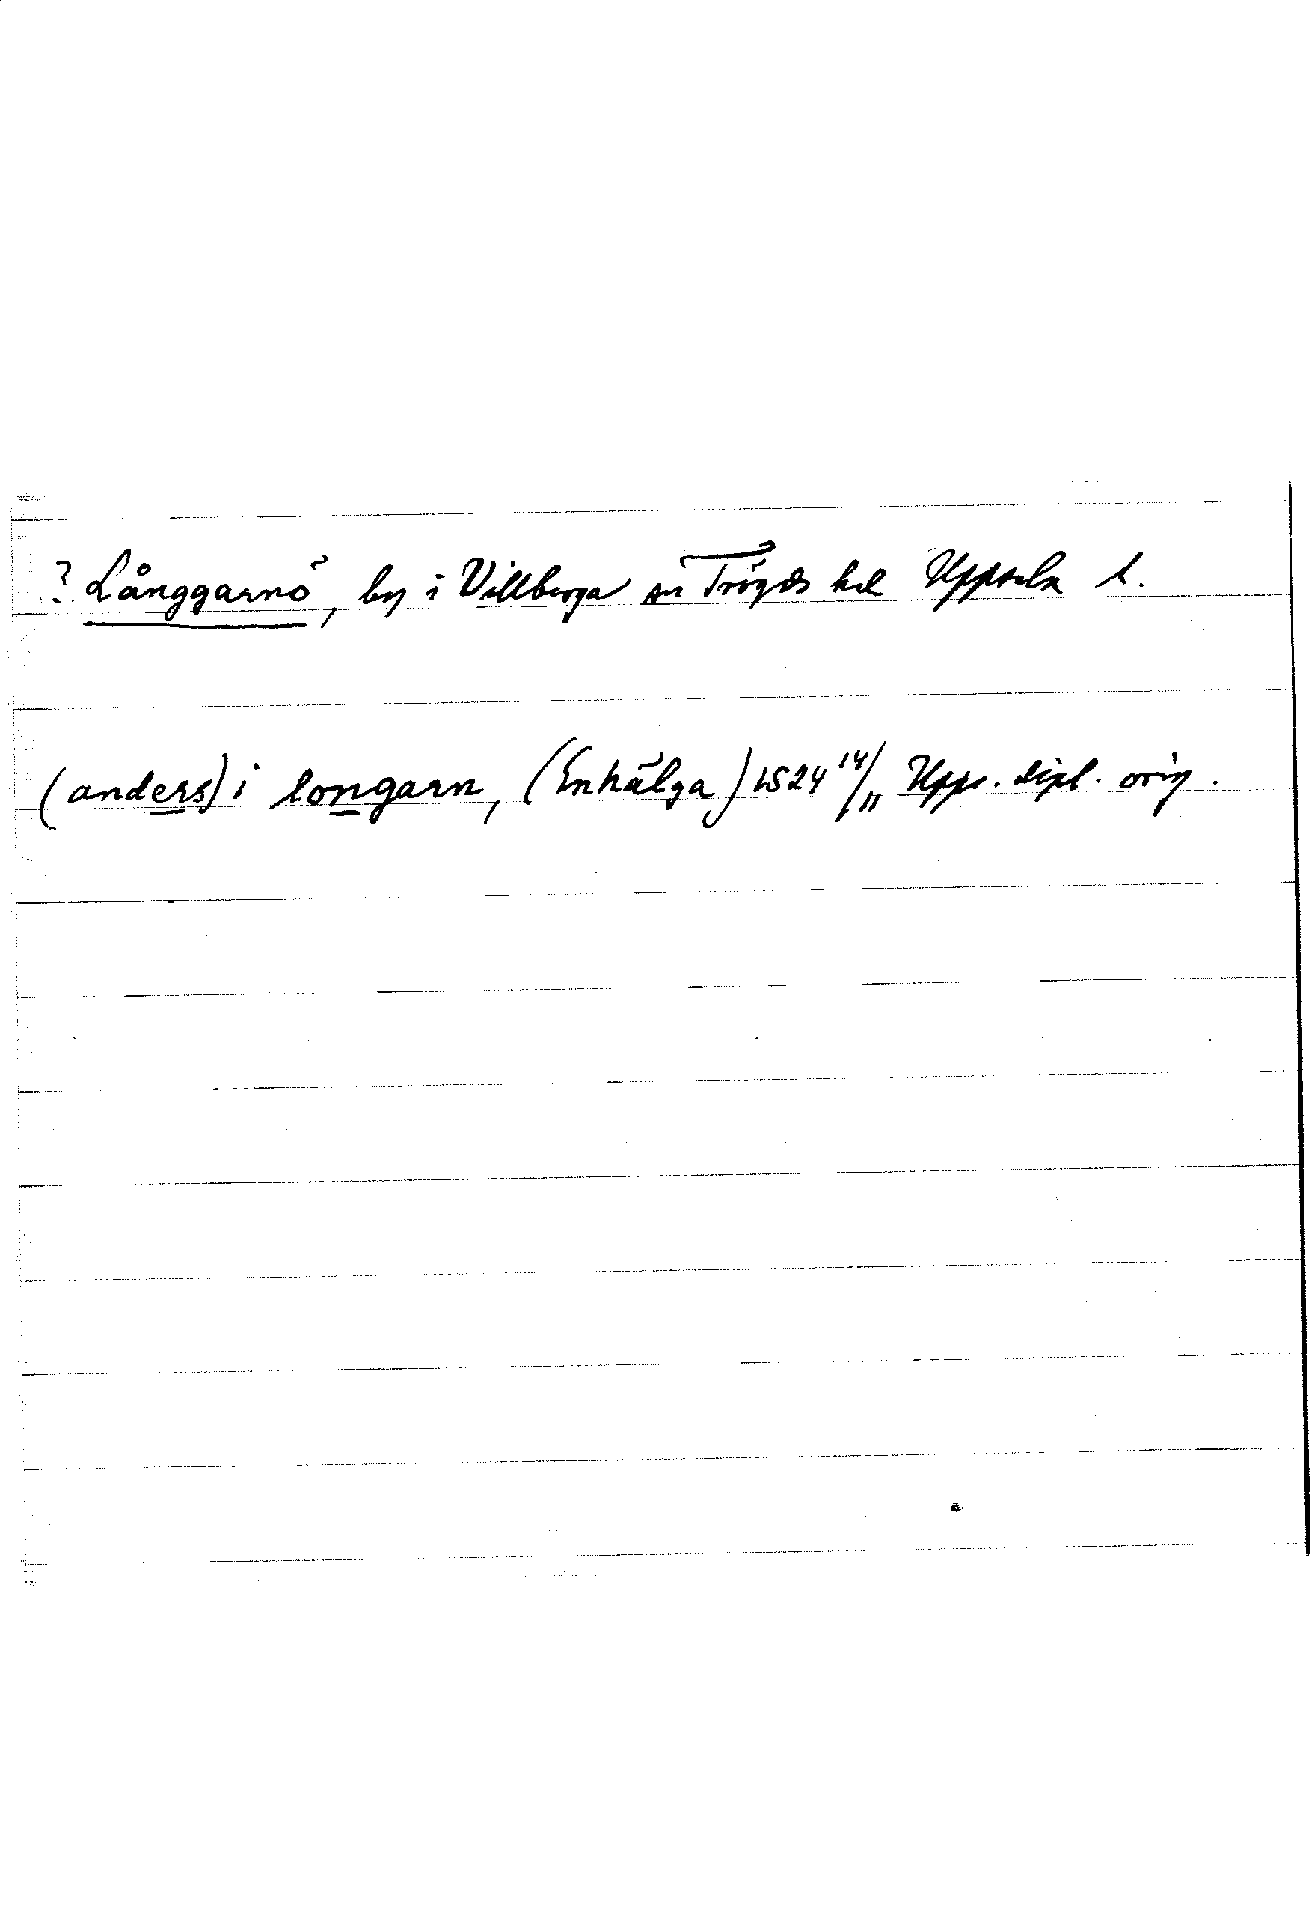 ? Långgarnö, by i Villberga sn Trögds hd Uppsala l.
(anders) i longarn, (Enhälga) 1524 14/11 Upps. dipl. orig.